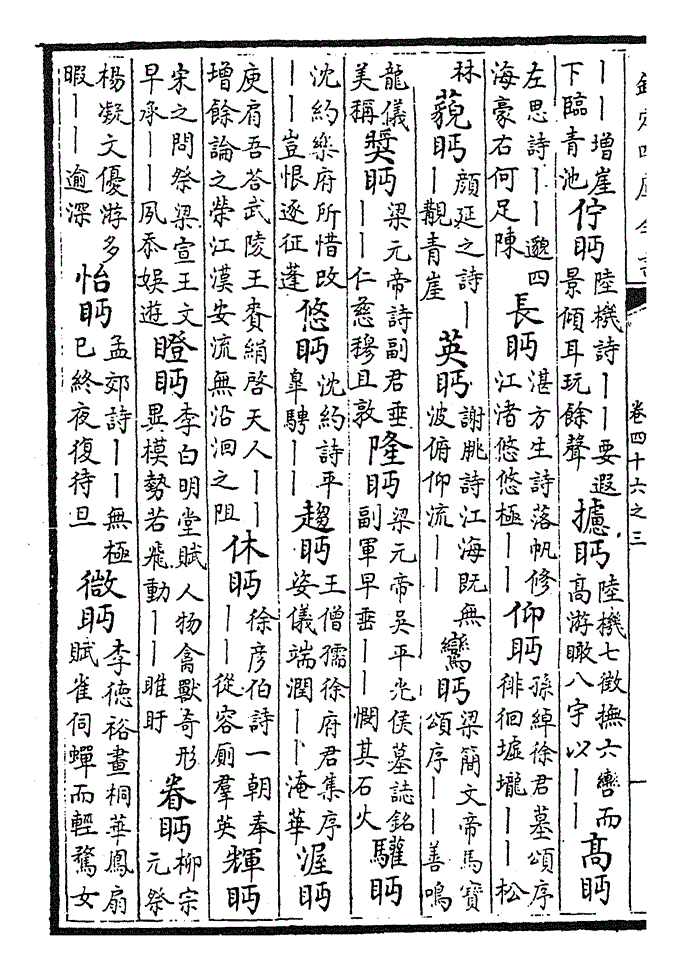 欽定四庫全書　卷四十六之三　一
——增崖下臨青池佇眄陸機詩——要遐景傾耳玩餘聲攄眄陸機七徵撫六轡而高游瞰八宇以——高眄
左思詩——邈四海豪右何足陳長眄湛方生詩落帆修江渚悠悠極——仰眄孫綽徐君墓頌序徘徊墟壠——松
林藐眄顔延之詩——覯青崖英眄謝朓詩江海既無波俯仰流——鸞眄梁簡文帝馬寶頌序——善鳴
龍儀美稱奬眄梁元帝詩副君垂——仁慈穆且敦隆眄梁元帝吳平光侯墓誌銘副軍早垂——憫其石火驩眄
沈約樂府所惜改——豈恨逐征蓬悠眄沈約詩平臯騁——趨眄王僧孺徐府君集序姿儀端潤——淹華渥眄
庾肩吾荅武陵王賚絹啓天人——增餘論之榮江漢安流無沿洄之阻休眄徐彥伯詩一朝奉——從容厠羣英輝眄
宋之問祭梁宣王文早承——夙忝娱遊瞪眄李白明堂賦人物禽獸奇形異模勢若飛動——睢盱眷眄柳宗元祭
楊凝文優游多暇——逾深怡眄孟郊詩——無極已終夜復待旦微眄李德裕畫桐華鳳扇賦雀伺蟬而輕鶩女